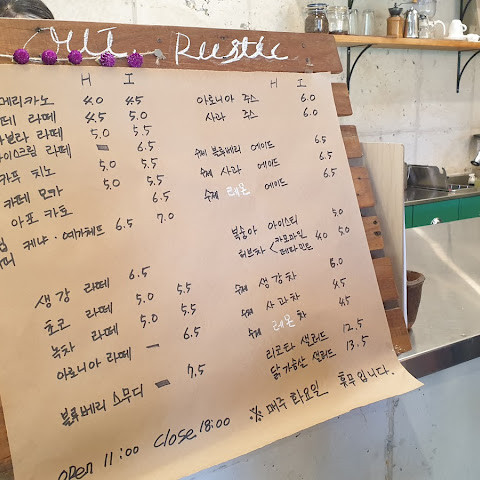 Mt. Rustic
H I
메리카노 4.0 4.5
페 라떼 4.5 5.0
닐라 라떼 5.0 5.5
아이스크림 라떼 - 6.5
카푸 치노 5.0 5.5
카페 모카 5.0 5.5
아포 카토 6.5
케냐 · 예가체프 6.5 7.0
생강 라떼 6.5
초코 라떼 5.0 5.5
녹차 라떼 5.0 5.5
아로니아 라떼 - 6.5
블루베리 스무디 - 7.5
H I
아로니아 주스 6.0
사과 주스 6.0
수제 블루베리 에이드 6.5
수제 사과 에이드 6.5
수제 레몬 에이드 6.5
복숭아 아이스티 5.0
허브차 < 카모마일 페퍼민트 4.0 5.0
수제 생강차 6.0
수제 사과차 4.5
수제 레몬차 4.5
리코타 샐러드 12.5
닭가슴살 샐러드 13.5
open 11:00 close 18:00 ※ 매주 화요일 휴무입니다.